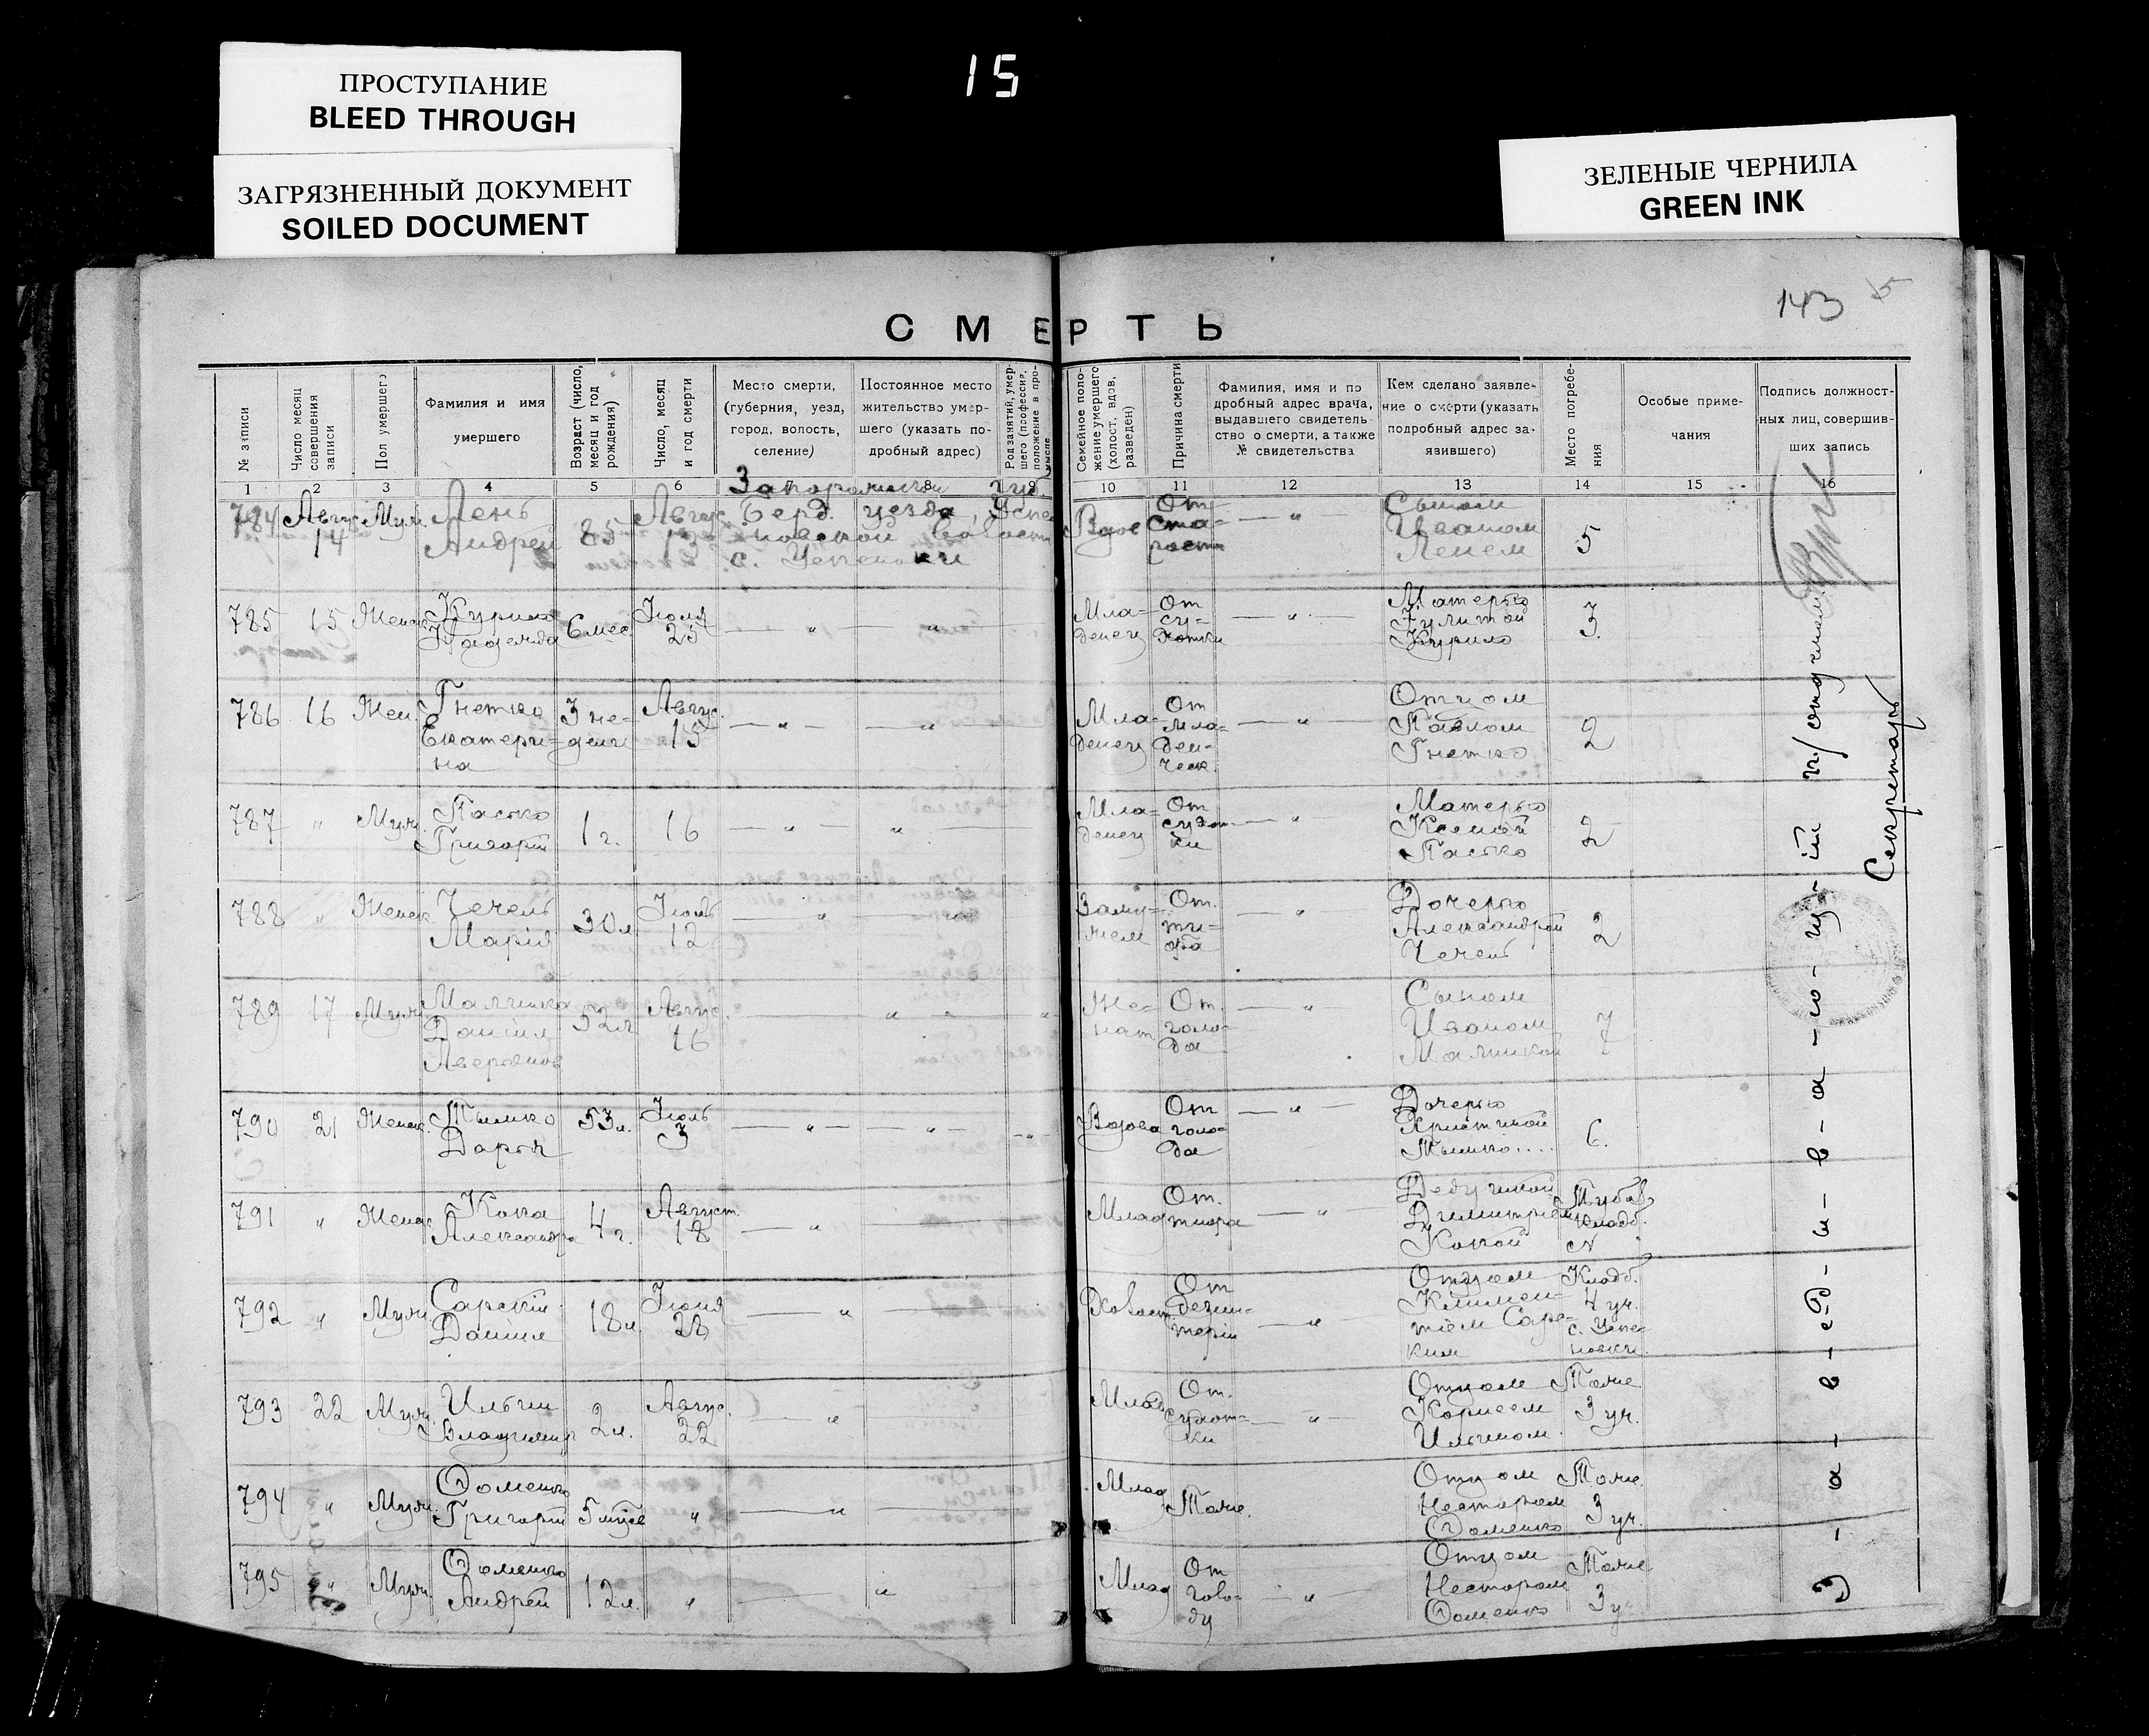 ПРОСТУПАНИЕ
BLEED THROUGH
ЗАГРЯЗНЕННЫЙ ДОКУМЕНТ
SOILED DOCUMENT
15
ЗЕЛЕНЫЕ ЧЕРНИЛА
GREEN INK
143
СМЕРТЬ
№ записи
Число месяц совершения записи
Пол умершего
Фамилия и имя умершего
Возраст (число, месяц и год рождения)
Число, месяц и год смерти
Место смерти, (губерния, уезд, город, волость, селение)
Постоянное место жительство умершего (указать подробный адрес)
Род занятий, умершего (профессия, положение в промысле
Семейное положение умершего (холост, вдов, разведен)
Причина смерти
Фамилия, имя и подробный адрес врача, выдавшего свидетельство о смерти, а также № свидетельства
Кем сделано заявление о смерти (указать подробный адрес заявившего)
Место погребения
Особые примечания
Подпись должностных лиц, совершивших запись
1 2 3 4 5 6 7 8 9 10 11 12 13 14 15 16
784 Август 14 Муж. Лень Андрей 85 Август 13 Берд. уезда, с. Успеновки Вдов От старости — „ — Сыном Иваном Ленем 5
785 15 Женск. Курило Надежда 6 мес. Июля 25 — „ — „ — Младенец От сухотки Матерью Курило 3
786 16 Жен. Гнетко Екатерина 3 недели Авгус. 15 — „ — „ — Младенец От младенческ. — „ — Отцом Павлом Гнетко 2
787 „ Муж. Пастко Григорий 1 г. 16 — „ — „ — Младенец От сухотки — „ — Матерью Пастко 2
788 „ Женск. Чечель Марія 30 л Июль 12 — „ — Замужем От тифа — „ — Дочерью Александрой Чечель 2
789 17 Муж. Даніил 52 л Авгус. 16 — „ — „ Женат От голода — „ — Сыном Иваном 7
790 21 Женск. Тымко Дарья 53 л. Июль 3 — „ — „ — „ Вдова От голода — „ — Дочерью Христиной Тымко.... 6.
791 „ Женск. Кока Александра 4 г. Август. 18 — „ — Млад От тифа — „ — Дедушкой Димитрием Кокой кладб.
792 „ Муж. Сарскій Даніил 18 л Июня 28 — „ — Холост От дезинтерии — „ — Отцом Климентием Сарским Кладб. 4 уч. с. Успеновки
793 22 Муж. Ильчин Владимир 2 л. Авгус. 22 — „ — Млад От сухотки — „ — Отцом Корнеем Ильчином Тоже 3 уч.
794 „ Муж. Фоменко Григорій „ — „ — Млад Тоже. Отцом Нестором Фоменко Тоже 3 уч.
795 „ Муж. Фоменко Андрей 12 л. „ — „ — Млад От голоду — „ — Отцом Нестором Фоменко Тоже 3 у
Секретарь